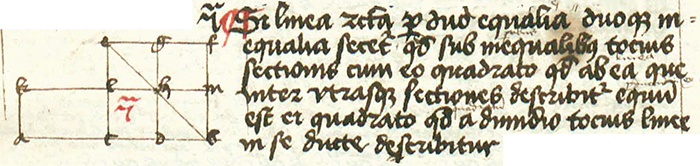 Si linea recta ꝑ duo equalia duoqꝫ in=
equalia secet̉ qđ sub inequalibꝰ tocius
sectionis cum eo quadrato qđ ab ea que
inter vtrasqꝫ sectiones describit̉ equū
est ei quadrato qđ a dimidio tocius linee
in se ducte describitur
e g f
k l h m
a c d b